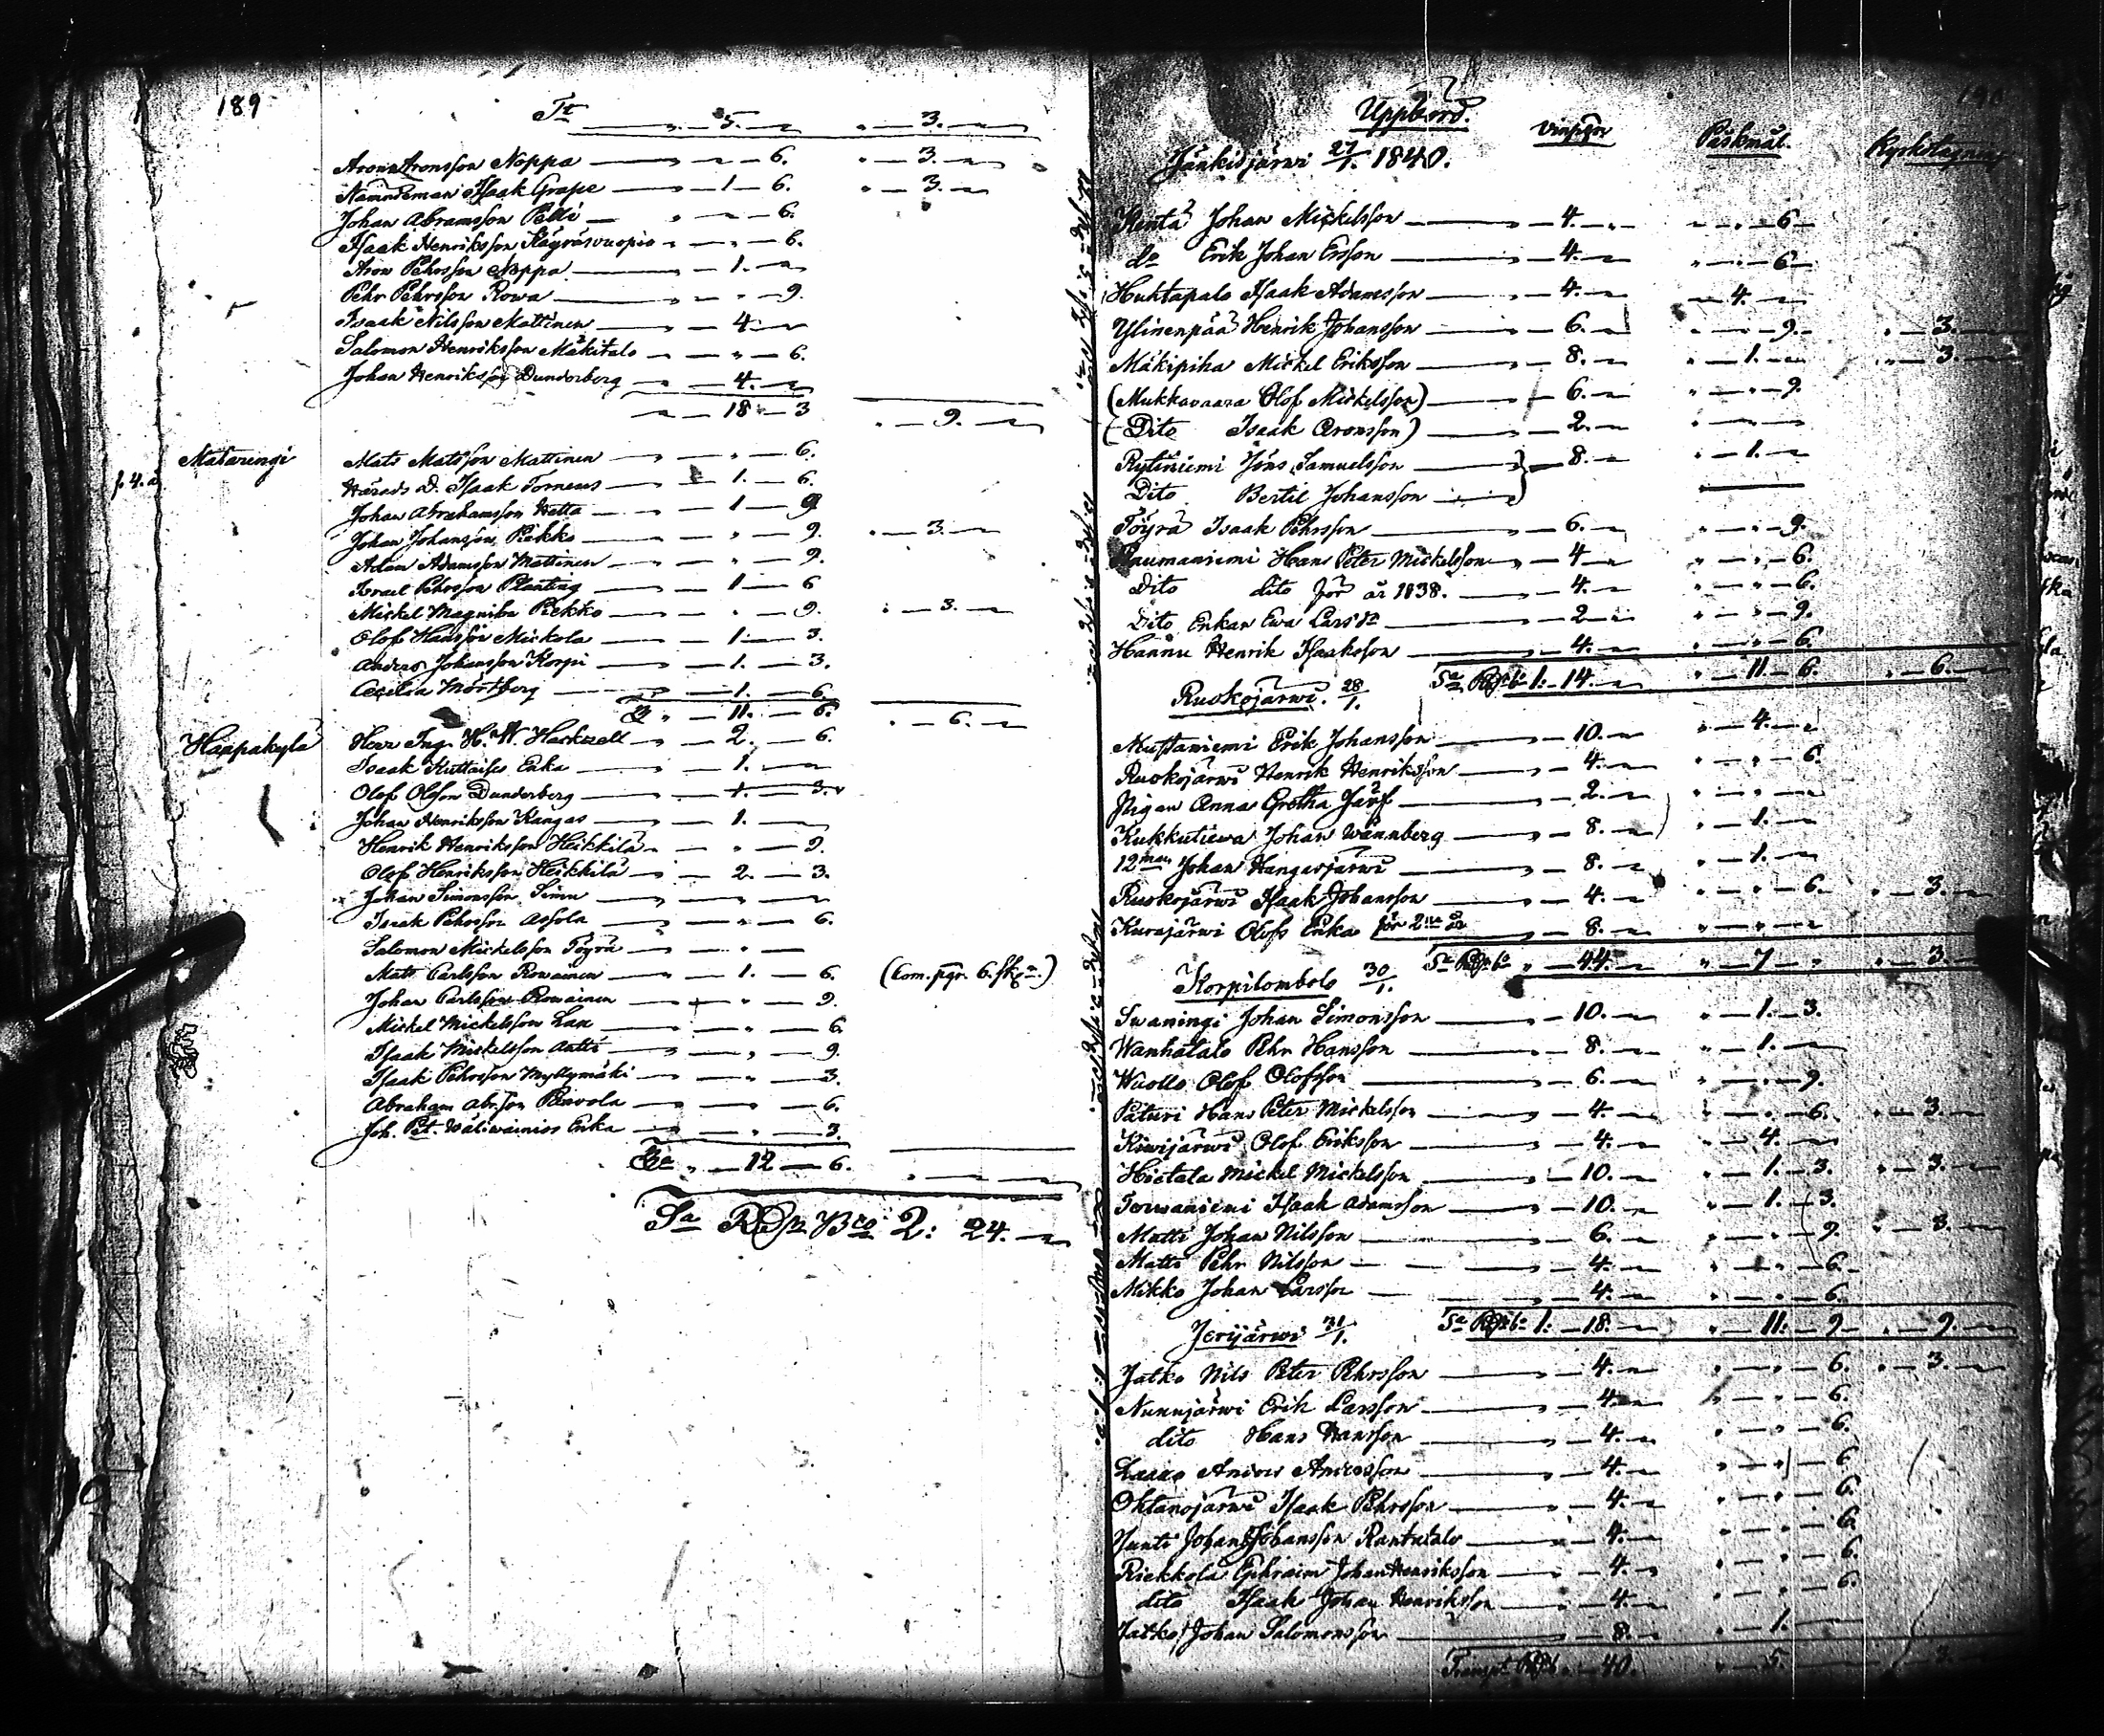 189
Tt — „ — 5. — „ — 3. —
Aron Aronsson Noppa — „ — „ — 6. „ — 3. —
Nämndeman Isaak Grape — „ — 1 — 6. „ — 3. —
Johan Abramsson Pelli — „ — „ — 6.
Isaak Henriksson — „ — „ — 6.
Aron Pehrsson Noppa — „ — 1. —
Pehr Pehrsson Rowa — „ — „ — 9.
Isaak Nilsson Mattinen — „ — 4. —
Salomon Henriksson Mäkitalo — „ — „ — 6.
Johan Henriksson Dunderberg — „ — 4. —
„ — 18 — 3 „ — 9. —
Matarengi Mats Matsson Mattinen — „ — „ — 6.
Härads D. Isaak Torneus — „ — 1. — 6.
Johan Abrahamsson Hetta — „ — 1 — 9
Johan Johansson Piekko — „ — „ — 9. „ — 3. —
Adam Adamsson Mattinen — „ — „ — 9.
Israel Pehrsson Planting — „ — 1 — 6
Mickel Piekko — „ — „ — 9. „ — 3. —
Olof Hansson Mickola — „ — 1 — 3.
Andreas Johansson Korpi — „ — 1. — 3.
Cecilia Mörtberg — „ — 1. — 6
„ — 11. — 6. „ — 6. —
Haapakylä Herr Ing. H. W. Hackzell — „ — 2. — 6.
Isaak Kuttaises Enka — „ — 1. —
Olof Olofson Dunderberg — „ — 1. — 3.
Johan Henriksson Kangas — „ — 1. —
Henrik Henriksson Heikkilä — „ — „ — 9.
Olof Henriksson Heikkilä — „ — 2. — 3.
Johan Simonsson Simu — „ — „ —
Isaak Pehrsson Assola — „ — „ — 6.
Salomon Mickelsson Töyrä — „ — „ —
Mats Carlsson Rowainen — „ — 1. — 6. (Com. pgr. 6. sk.)
Johan Carlsson Rowainen — „ — „ — 9.
Mickel Mickelsson Lax — „ — „ — 6
Isaak Mickelsson Antti — „ — „ — 9.
Isaak Pehrsson Myllymäki — „ — „ — 3.
Abraham Abr.son Paavola — „ — „ — 6.
Joh. Pet. Wäliwainios Enka — „ — „ — 3.
Sa „ — 12 — 6.
Sa RDr Bco 2: 24. —
Uppbörd. 190
Jänkisjärwi 27/1. 1840. Påskmål. Kyrktagning
Kenta Johan Mickelsson — „ — 4. — „ — „ — 6
do Erik Johan Ersson — „ — 4. — „ — „ — 6
Huhtapalo Isaak Adamsson — „ — 4. — — 4. —
Ylinenpää Henrik Johansson — „ — 6. — „ — „ — 9. „ — 3. —
Mäkipiha Mickel Eriksson — „ — 8. — „ — 1. — „ — 3
(Mukkavaara Olof Mickelsson) — „ — 6. — „ — „ — 9.
(Dito Isaak Aronsson) — „ — 2. — „ — „ —
Rytiniemi Jöns Samuelsson — } — 8. — „ — 1. —
Dito Bertil Johansson — }
Töyrä Isaak Pehrsson — „ — 6. — „ — „ — 9.
Raumaniemi Hans Peter Mickelsson — „ — 4 — „ — „ — 6.
Dito dito för år 1838. — „ — 4. — „ — „ — 6.
Dito Enkan Ewa Larsdr — „ — 2 — „ — „ — 9.
Hannu Henrik Isaaksson — „ — 4. — „ — „ — 6.
Sa RDr bo 1: — 14. — „ — 11 — 6. „ — 6. —
Ruokojärwi. 28/1.
Mustaniemi Erik Johansson — „ — 10. — „ — 4. —
Ruokojärwi Henrik Henriksson — „ — 4. — „ — „ — 6.
Pigan Anna Gretha Järf — „ — 2. — „ — „ —
Kukkutiewa Johan Wännberg — „ — 8. — „ — 1. —
12man Johan Hangasjärwi — „ — 8. — „ — 1. —
Ruokojärwi Isaak Johansson — „ — 4. — „ — „ — 6 „ — 3. —
Kurajärwi Olofs Enka för 2ne år — 8. — „ — „ —
Sa RDr bo „ — 44. — „ — 7 — „ „ — 3 —
Korpilombolo 30/1.
Swaningi Johan Simonsson — „ — 10. — „ — 1. — 3.
Wanhatalo Pehr Hansson — „ — 8. — „ — 1. —
Wuollo Olof Olofsson — „ — 6. — „ — „ — 9.
Paturi Hans Peter Mickelsson — „ — 4. — „ — „ — 6. „ — 3. —
Kiwijärwi Olof Eriksson — „ — 4. — „ — 4. —
Hietala Mickel Mickelsson — „ — 10. — „ — 1. — 3. „ — 3. —
Torwaniemi Isaak Adamsson — „ — 10. — „ — 1. — 3.
Matti Johan Nilsson — „ — 6. — „ — „ — 9. „ — 3. —
Matti Pehr Nilsson — „ — 4. — „ — „ — 6.
Mikko Johan Larsson — „ — 4. — „ — „ — 6.
Sa RDr bo 1: — 18. — „ — 11: — 9 — „ — 9. —
Jerijärwi 31/1.
Jatko Nils Peter Pehrsson — „ — 4. — „ — „ — 6. „ — 3. —
Nunujärwi Erik Larsson — „ — 4. — „ — „ — 6.
dito Hans Hansson — „ — 4. — „ — „ — 6.
Anders Andersson — „ — 4. — „ — „ — 6
Ohtanojärwi Isaak Pehrsson — „ — 4. — „ — „ — 6.
Johan Johansson Rantatalo — „ — 4. — „ — „ — 6
Riekkola Ephraim Johan Henriksson — „ — 4. — „ — „ — 6.
dito Isaak Johan Henriksson — „ — 4. — „ — „ — 6.
Jatko Johan Salomonsson — „ — 8. — „ — 1. —
Transpt RDr b „ — 40. „ — 5.